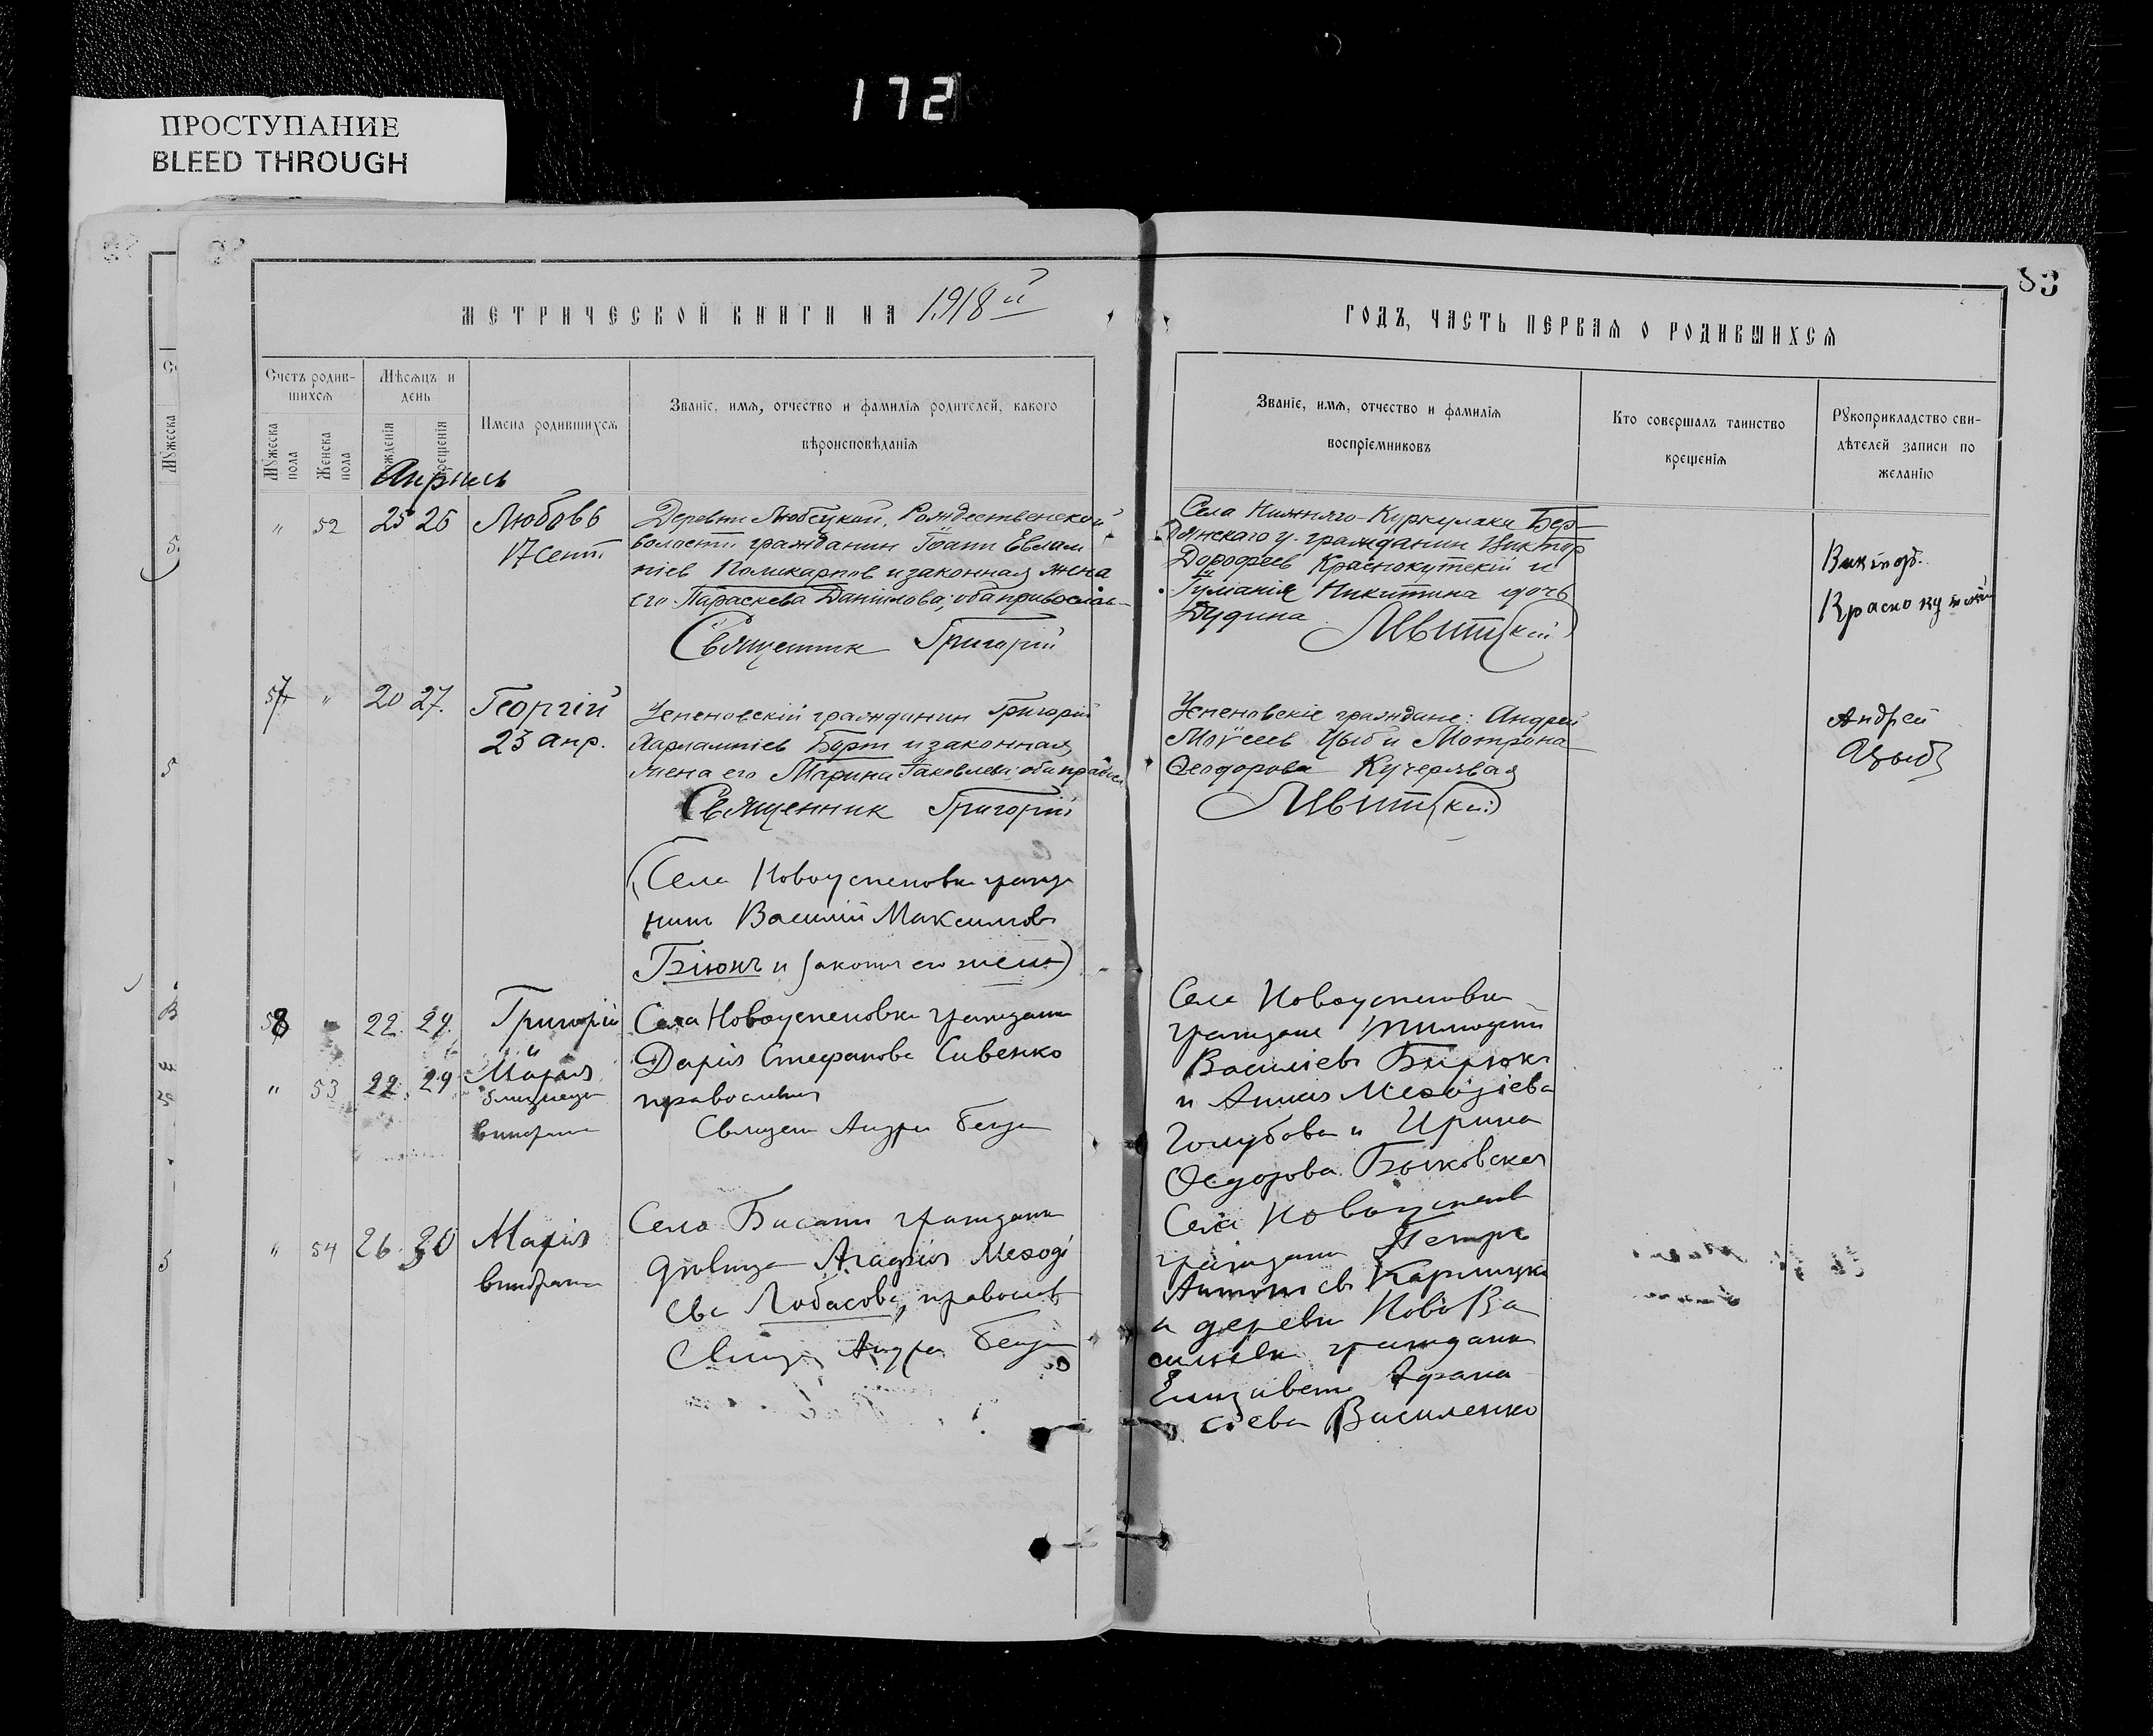 172
ПРОСТУПАНИЕ
BLEED THROUGH
83
МЕТРИЧЕСКОЙ КНИГИ НА 1918й
ГОДЪ, ЧАСТЬ ПЕРВАЯ О РОДИВШИХСЯ
Счетъ родив-
шихся
Мужеска
пола
Женска
пола
Мѣсяцъ и
день
рожденія
крещенія
Имена родившихся
Званіе, имя, отчество и фамилія родителей, какого
вѣроисповѣданія
Званіе, имя, отчество и фамилія
воспріемниковъ
Кто совершалъ таинство
крещенія
Рукоприкладство сви-
дѣтелей записи по
желанію
Апрѣль
" 52 25 26 Любовь
17 Сент
Деревни Любицкой, Рождественской
волости гражданин Іоанн Евлам
піев Поликарпов и законная жена
его Параскева Даніилова; оба православ-
Священник Григорій
Села Нижняго-Куркулака Бер-
дянскаго у. гражданин Виктор
Дорофеев Краснокутскій и
Никитина дочь
Дудина Левитскій
Виктор
Краснокутскій
57 " 20 27. Георгій
23 апр.
Успеновскій гражданин Григорій
Харлампіев Борт и законная
жена его Марина Яковлева: оба правосл
Священник Григорій
Успеновскіе граждане: Андрей
Моѵсеев Цыб и Мотрона
Ѳеодорова Кучерявая
Левитскій
Андрей
Цыб
(Села Новоуспеновки гражда
нинъ Василій Максимовъ
Бiюкъ и законн его жена)
58 " 22. 29. Григорій
и
" 53 22. 29. Марія
близнецы
Села Новоуспеновки гражданка
Дарія Стефанова Сивенко
православн
Священ Андрей
Села Новоуспеновки
граждане Тимофей
Васильевъ Бирюкъ
и Анна Меѳодіева
Голубова и Ирина
Ѳедорова Бычковская
" 54 26. 30 Марія
Села Басани гражданка
дѣвица Агафія Меѳоді
ева Лобасова, православ
Священ Андрей
Села Новоуспенов
гражданин Петръ
Антоньевъ Карлицка
и деревни НовоВа
сильевки гражданка
Елизавета Афана
сіева Василенко